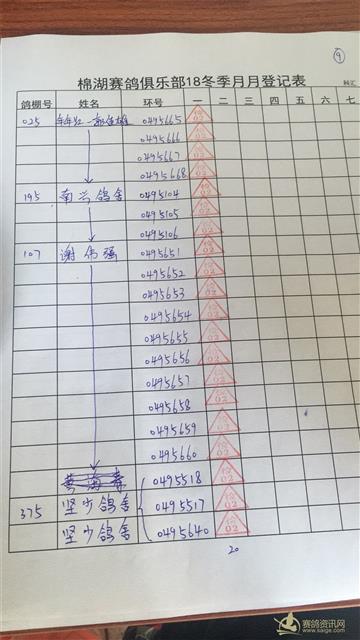 9
棉湖赛鸽俱乐部18冬季月月登记表
科汇
鸽棚号 姓名 环号 一 二 三 四 五 六 七
025 0495665
0495666
0495667
0495668
195 南兴鸽舍 0495104
0495105
0495106
107 谢伟强 0495651
0495652
0495653
0495654
0495655
0495656
0495657
0495658
0495659
0495660
0495518
375 坚少鸽舍 0495517
坚少鸽舍 0495640
20
赛鸽资讯网
www.saige.com